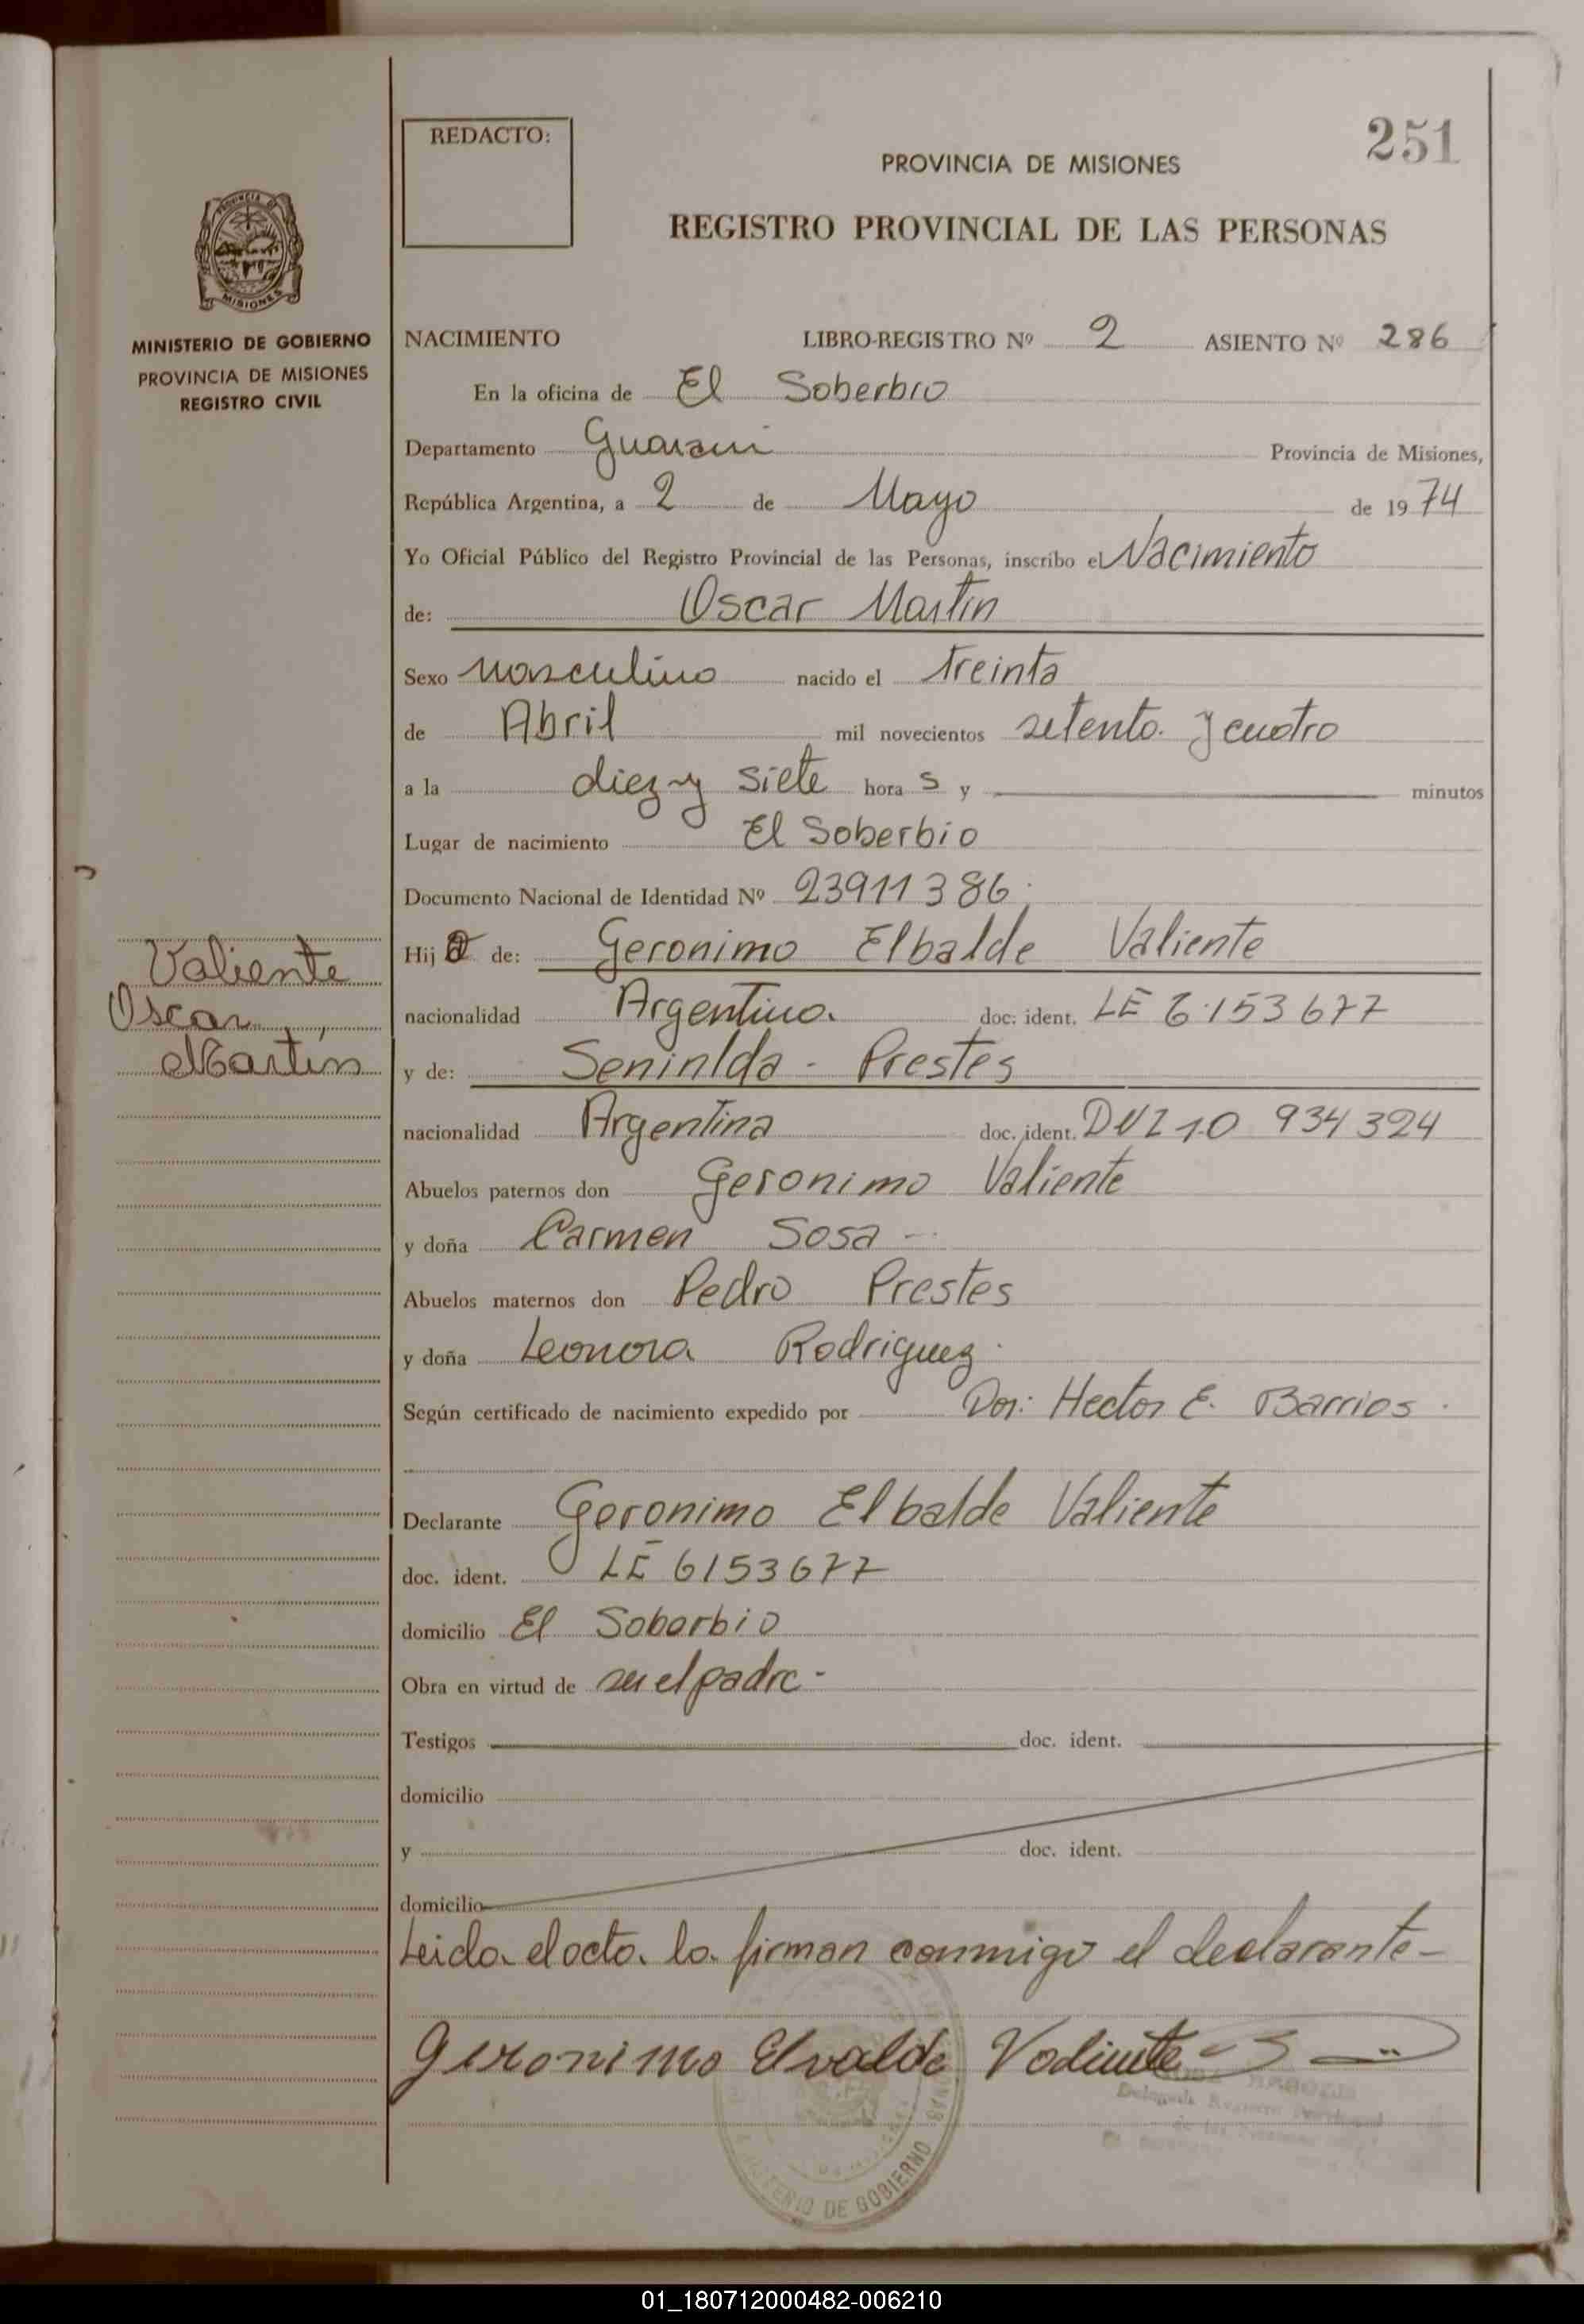 251
REDACTO:
PROVINCIA DE MISIONES
REGISTRO PROVINCIAL DE LAS PERSONAS
PROVINCIA DE
MISIONES
MINISTERIO DE GOBIERNO
PROVINCIA DE MISIONES
REGISTRO CIVIL
NACIMIENTO LIBRO-REGISTRO Nº 2 ASIENTO Nº 286
En la oficina de El Soberbio
Departamento Guarani Provincia de Misiones,
República Argentina, a 2 de Mayo de 1974
Yo Oficial Público del Registro Provincial de las Personas, inscribo el Nacimiento
de: Oscar Martin
Sexo Masculino nacido el treinta
de Abril mil novecientos setenta y cuatro
a la diez y siete hora s y minutos
Lugar de nacimiento El Soberbio
Documento Nacional de Identidad Nº 23911386
Hij o de: Geronimo Elbalde Valiente
nacionalidad Argentino. doc. ident. LE 6.153677
y de: Seninlda - Prestes
nacionalidad Argentina doc. ident. DNI 10 934 324
Abuelos paternos don Geronimo Valiente
y doña Carmen Sosa -
Abuelos maternos don Pedro Prestes
y doña Leonora Rodriguez
Según certificado de nacimiento expedido por Dor: Hector E. Barrios.
Declarante Geronimo Elbalde Valiente
doc. ident. LE 6153677
domicilio El Soberbio
Obra en virtud de ser el padre -
Testigos doc. ident.
domicilio
y doc. ident.
domicilio
Leida el acta. la firman conmigo el declarante -
Geronimo Elvalde Valiente
Valiente
Oscar
Martín
DE GOBIERNO
01_180712000482-006210